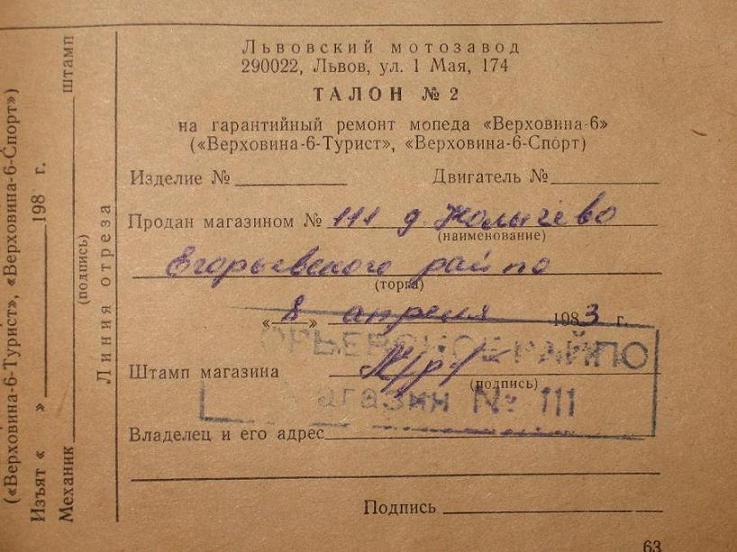 Львовский мотозавод
290022, Львов, ул. 1 Мая, 174
ТАЛОН № 2
на гарантийный ремонт мопеда «Верховина-6»
(«Верховина-6-Турист», «Верховина-6-Спорт)
Изделие № Двигатель №
Продан магазином № 111 д. Колычево
(наименование)
Егорьевского райпо
(торга)
«8» апреля 1983 г.
РАЙПО
Штамп магазина
(подпись)
Магазин № 111
Владелец и его адрес
Подпись
63
Линия отреза
(«Верховина-6-Турист», «Верховина-6-Спорт»)
Изъят « » 198 г.
Механик штамп
(подпись)